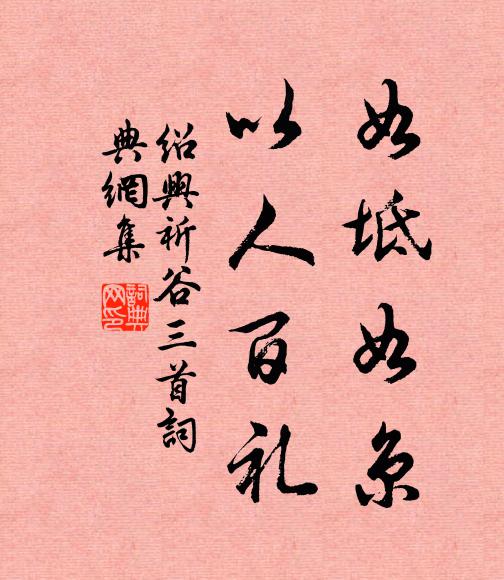 如坻如京
以人百礼
绍興祈谷三首詞
典網集
詞典網印